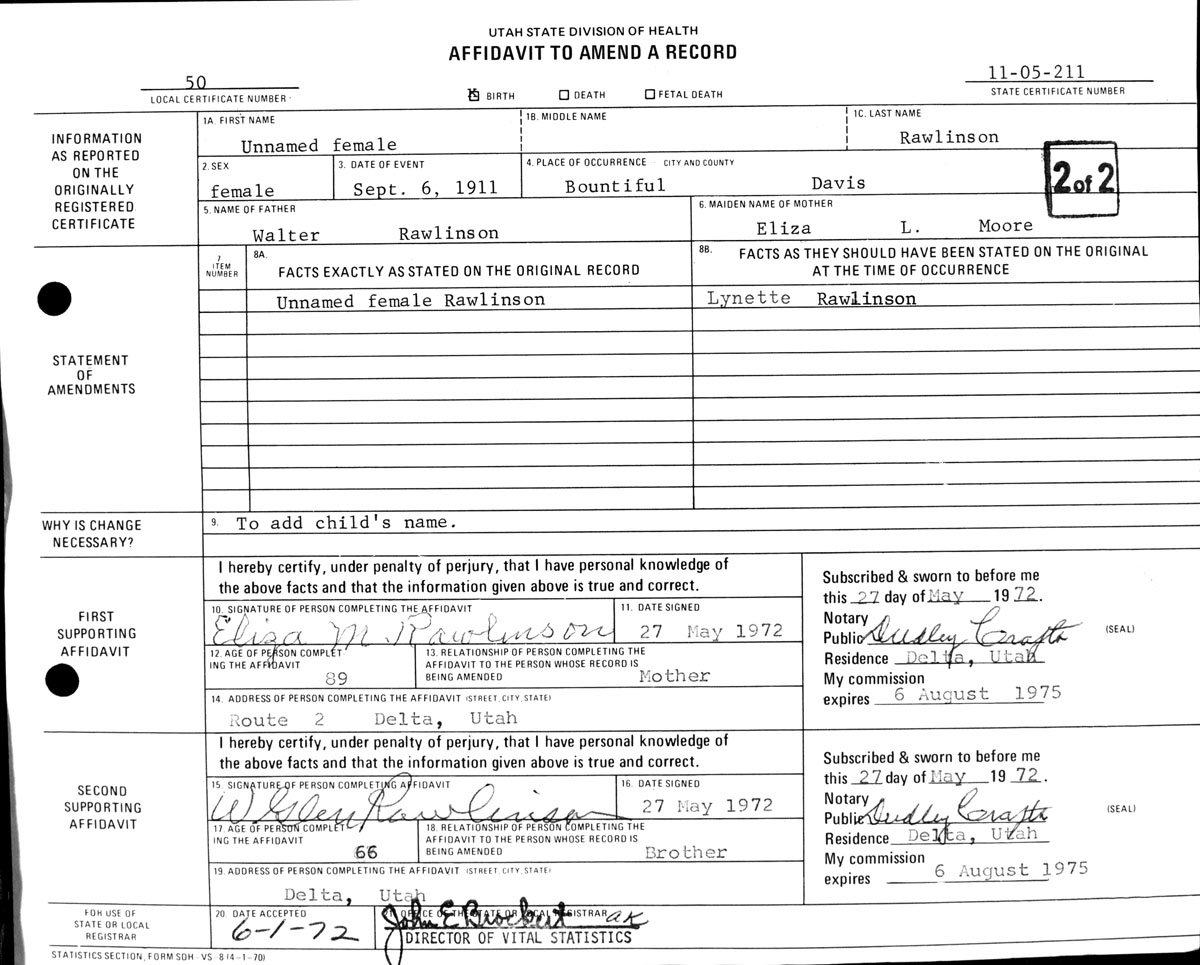 UTAH STATE DIVISION OF HEALTH
AFFIDAVIT TO AMEND A RECORD
50
LOCAL CERTIFICATE NUMBER
☒ BIRTH ☐ DEATH ☐ FETAL DEATH
11-05-211
STATE CERTIFICATE NUMBER
INFORMATION
AS REPORTED
ON THE
ORIGINALLY
REGISTERED
CERTIFICATE
1A. FIRST NAME
Unnamed female
1B. MIDDLE NAME
1C. LAST NAME
Rawlinson
2. SEX
female
3. DATE OF EVENT
Sept. 6, 1911
4. PLACE OF OCCURRENCE CITY AND COUNTY
Bountiful Davis
2 of 2
5. NAME OF FATHER
Walter Rawlinson
6. MAIDEN NAME OF MOTHER
Eliza L. Moore
STATEMENT
OF
AMENDMENTS
7
ITEM
NUMBER
8A.
FACTS EXACTLY AS STATED ON THE ORIGINAL RECORD
8B. FACTS AS THEY SHOULD HAVE BEEN STATED ON THE ORIGINAL
AT THE TIME OF OCCURRENCE
Unnamed female Rawlinson
Lynette Rawlinson
WHY IS CHANGE
NECESSARY?
9. To add child's name.
FIRST
SUPPORTING
AFFIDAVIT
I hereby certify, under penalty of perjury, that I have personal knowledge of
the above facts and that the information given above is true and correct.
10. SIGNATURE OF PERSON COMPLETING THE AFFIDAVIT
Eliza M. Rawlinson
11. DATE SIGNED
27 May 1972
12. AGE OF PERSON COMPLET
ING THE AFFIDAVIT
89
13. RELATIONSHIP OF PERSON COMPLETING THE
AFFIDAVIT TO THE PERSON WHOSE RECORD IS
BEING AMENDED Mother
14. ADDRESS OF PERSON COMPLETING THE AFFIDAVIT (STREET, CITY, STATE)
Route 2 Delta, Utah
Subscribed & sworn to before me
this 27 day of May 1972.
Notary
Public Dudley Crafts (SEAL)
Residence Delta, Utah
My commission
expires 6 August 1975
SECOND
SUPPORTING
AFFIDAVIT
I hereby certify, under penalty of perjury, that I have personal knowledge of
the above facts and that the information given above is true and correct.
15 SIGNATURE OF PERSON COMPLETING AFFIDAVIT
W Glen Rawlinson
16. DATE SIGNED
27 May 1972
17. AGE OF PERSON COMPLET
ING THE AFFIDAVIT
66
18. RELATIONSHIP OF PERSON COMPLETING THE
AFFIDAVIT TO THE PERSON WHOSE RECORD IS
BEING AMENDED Brother
19. ADDRESS OF PERSON COMPLETING THE AFFIDAVIT (STREET, CITY, STATE)
Delta, Utah
Subscribed & sworn to before me
this 27 day of May 1972.
Notary
Public Dudley Crafts (SEAL)
Residence Delta, Utah
My commission
expires 6 August 1975
FOR USE OF
STATE OR LOCAL
REGISTRAR
20. DATE ACCEPTED
6-1-72
21. OFFICE OF THE STATE OR LOCAL REGISTRAR
John E Brockert ak
DIRECTOR OF VITAL STATISTICS
STATISTICS SECTION, FORM SDH - VS - 8 (4-1-70)